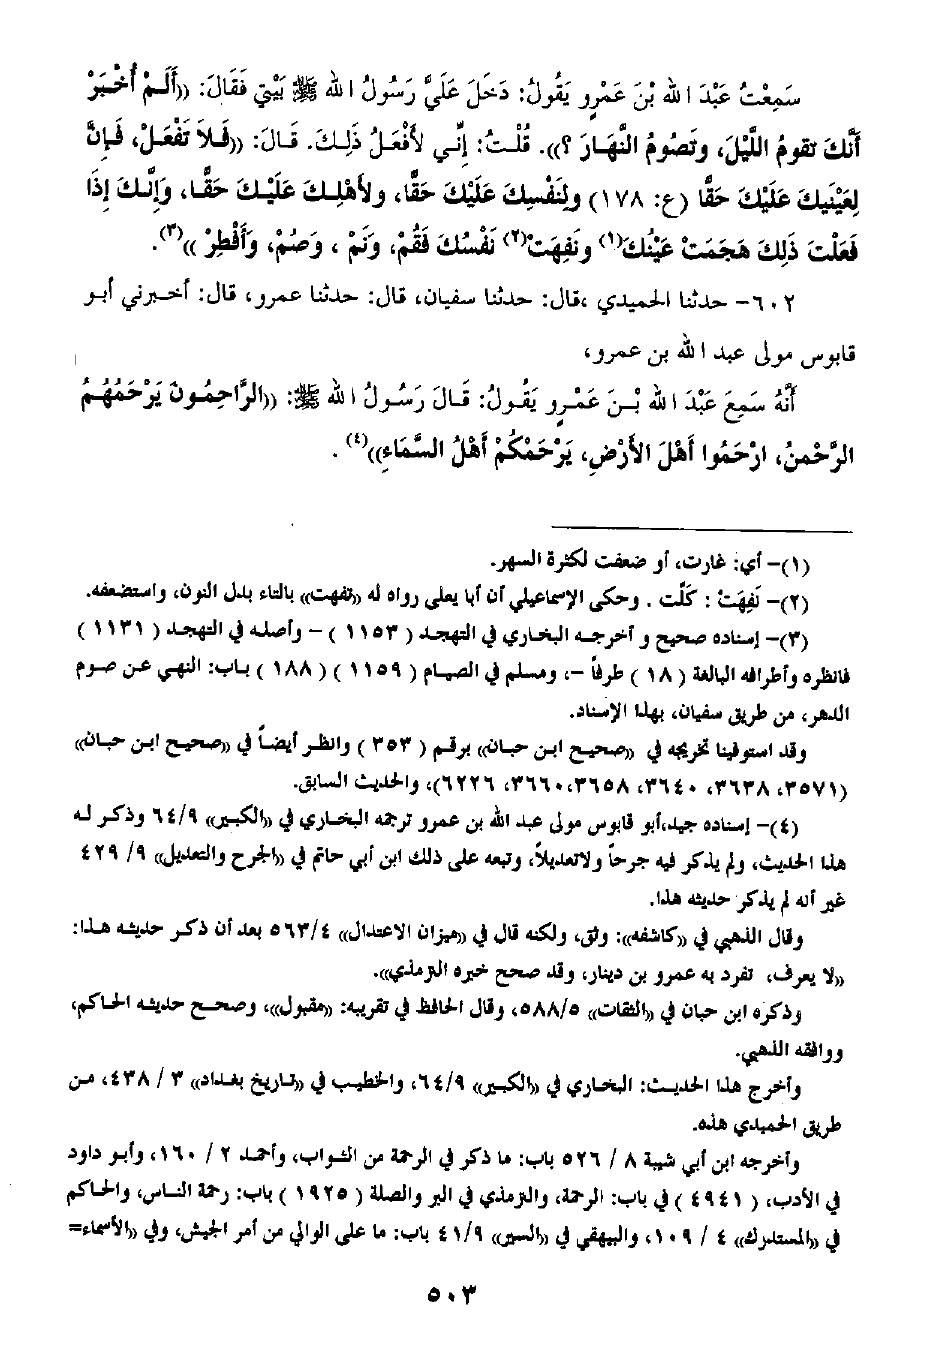 سَمِعْتُ عَبْدَ الله بْنَ عَمْرٍو يَقُولُ: دَخَلَ عَلَيَّ رَسُولُ الله ﷺ بَيْتِي فَقَالَ: ((أَلَمْ أُخْبَرْ
أَنَّكَ تَقومُ اللَّيْلَ، وتَصُومُ النَّهَارَ ؟)). قُلْتُ: إِنِّي لأَفْعَلُ ذَلِكَ. قَالَ: ((فَلاَ تَفْعَلْ، فَإِنَّ
لِعَيْنِيكَ عَلَيْكَ حَقّاً (ع: ١٧٨) ولِنَفْسِكَ عَلَيْكَ حَقّاً، ولأَهْلِكَ عَلَيْكَ حَقَّا، وَإِنَّكَ إِذَا
فَعَلْتَ ذَلِكَ هَجَمَتْ عَيْنُكَ(١) ونَفِهَتْ(٢) نَفْسُكَ فَقُمْ، وَنَمْ ، وَصُمْ، وَأَفْطِرْ ))(٣).
٦٠٢- حدثنا الحميدي ،قال: حدثنا سفيان، قال: حدثنا عمرو، قال: أخبرني أبو
قابوس مولى عبد الله بن عمرو،
أَنَّهُ سَمِعَ عَبْدَ الله بْنَ عَمْرٍو يَقُولُ: قَالَ رَسُولُ الله ﷺ: ((الرَّاحِمُونَ يَرْحَمُهُمُ
الرَّحْمنُ، ارْحَمُوا أَهْلَ الأَرْضِ، يَرْحَمْكُمْ أَهْلُ السَّمَاءِ))(٤) .
(١)- أي: غارت، أو ضعفت لكثرة السهر.
(٢)- نَفِهَتْ : كَلَّت . وحكى الإسماعيلي أن أبا يعلى رواه له ((تفهت)) بالتاء بدل النون، واستضعفه.
(٣)- إسناده صحيح و أخرجه البخاري في التهجد ( ١١٥٣ ) - وأصله في التهجد ( ١١٣١ )
فانظره وأطرافه البالغة ( ١٨ ) طرفاً -، ومسلم في الصيام ( ١١٥٩ ) ( ١٨٨ ) باب: النهي عن صوم
الدهر، من طريق سفيان، بهذا الإسناد.
وقد استوفينا تخريجه في ((صحيح ابن حبان)) برقم ( ٣٥٣ ) وانظر أيضاً في ((صحيح ابن حبان))
(٣٥٧١، ٣٦٣٨، ٣٦٤٠، ٣٦٥٨،٣٦٦٠، ٦٢٢٦)، والحديث السابق.
(٤)- إسناده جيد،أبو قابوس مولى عبد الله بن عمرو ترجمه البخاري في ((الكبير)) ٦٤/٩ وذكر له
هذا الحديث، ولم يذكر فيه جرحاً ولاتعديلاً، وتبعه على ذلك ابن أبي حاتم في ((الجرح والتعديل)) ٩/ ٤٢٩
غير أنه لم يذكر حديثه هذا.
وقال الذهبي في ((كاشفه)): وثق، ولكنه قال في ((ميزان الاعتدال)) ٥٦٣/٤ بعد أن ذكر حديثه هذا:
((لا يعرف، تفرد به عمرو بن دينار، وقد صحح خبره الترمذي)).
وذكره ابن حبان في ((الثقات)) ٥٨٨/٥، وقال الحافظ في تقريبه: ((مقبول))، وصحح حديثه الحاكم،
ووافقه الذهبي.
وأخرج هذا الحديث: البخاري في ((الكبير)) ٦٤/٩، والخطيب في ((تاريخ بغداد)) ٣ / ٤٣٨، من
طريق الحميدي هذه.
وأخرجه ابن أبي شيبة ٨ / ٥٢٦ باب: ما ذكر في الرحمة من الثواب، وأحمد ٢ / ١٦٠، وأبو داود
في الأدب، ( ٤٩٤١ ) في باب: الرحمة، والترمذي في البر والصلة ( ١٩٢٥ ) باب: رحمة الناس، والحاكم
في ((المستدرك)) ٤ / ١٠٩، والبيهقي في ((السير)) ٤١/٩ باب: ما على الوالي من أمر الجيش، وفي ((الأسماء=
٥٠٣